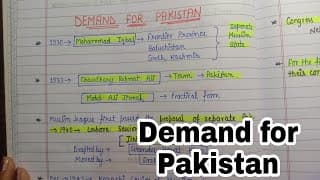 DEMAND FOR PAKISTAN
1930 → Mohammad Iqbal → Frontier Province
Baluchistan
Sindh, Kashmir
Separate
Muslim
State
1933 → Choudhary Rahmat Ali → Term → Pakistan
Mohd Ali Jinnah → Practical form
Muslim league first passed the proposal of separate
→ 1940 → Lahore
Drafted by → Sikandar
Moved by →
Congress
For the f
their co
Demand for
Pakistan